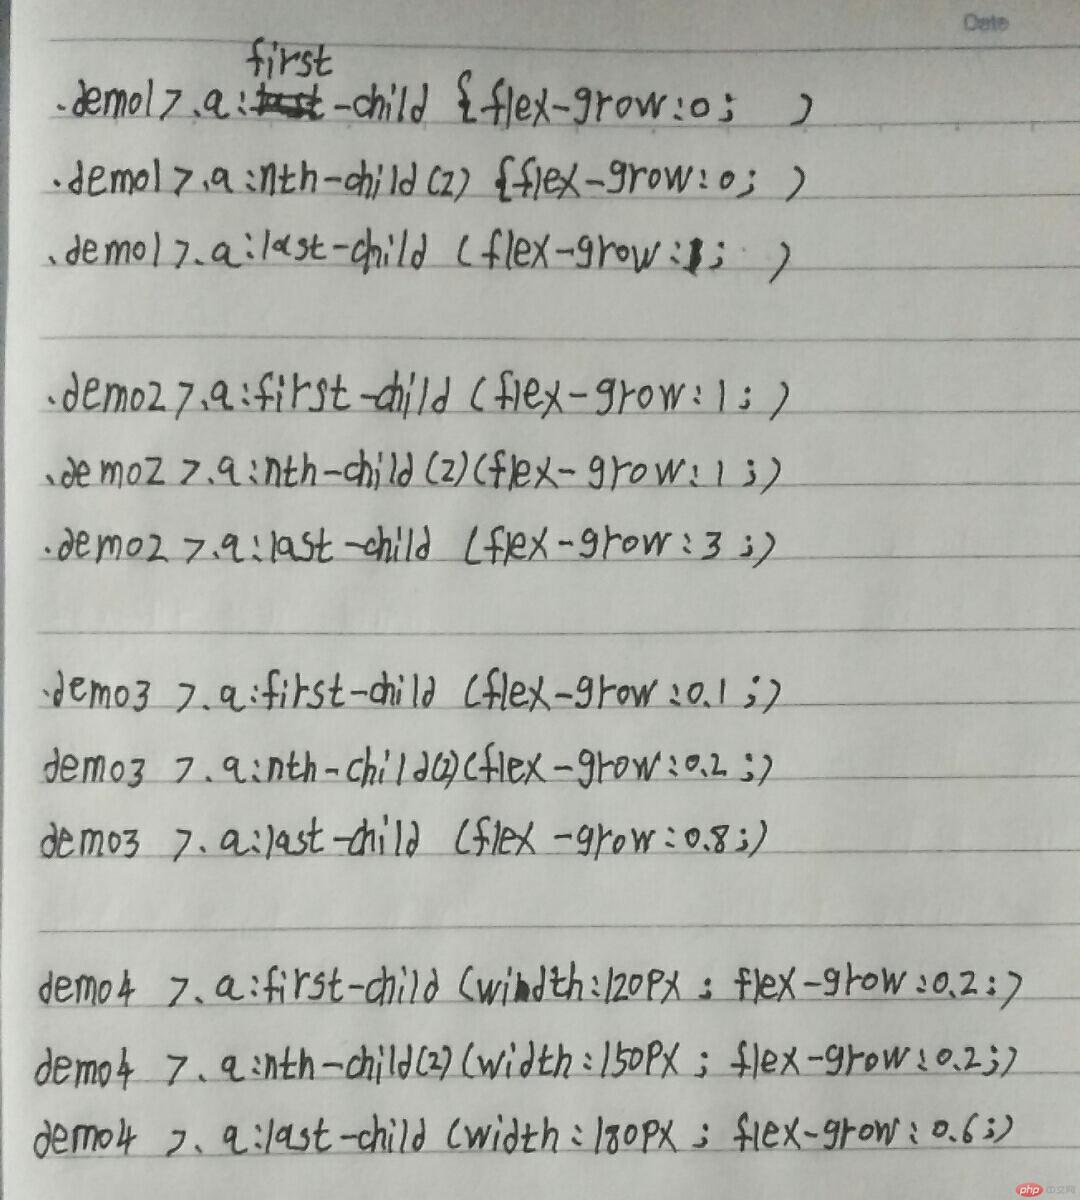 Date
first
.demo1>.a:last-child {flex-grow:0; )
.demo1>.a:nth-child(2) {flex-grow:0; )
.demo1>.a:last-child (flex-grow:1; )
.demo2>.a:first-child (flex-grow:1;)
.demo2>.a:nth-child(2)(flex-grow:1;)
.demo2>.a:last-child (flex-grow:3;)
.demo3 >.a:first-child (flex-grow:0.1;)
demo3 >.a:nth-child(2)(flex-grow:0.2;)
demo3 >.a:last-child (flex-grow:0.8;)
demo4 >.a:first-child (windth:120PX; flex-grow:0.2;)
demo4 >.a:nth-child(2)(width:150PX; flex-grow:0.2;)
demo4 >.a:last-child (width:180PX; flex-grow:0.6;)
php 中文网